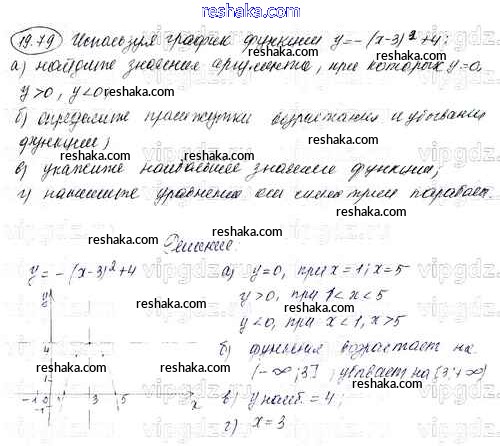 reshaka.ru
19.79 Используя график функции y=-(x-3)²+4:
а) найдите значения аргумента, при которых y=0,
y>0, y<0
reshaka.ru
б) определите промежутки возрастания и убывания
функции;
reshaka.ru
reshaka.ru
в) укажите наибольшее значение функции;
г) напишите уравнения оси симметрии параболы.
reshaka.ru
Решение:
reshaka.ru
y=-(x-3)²+4
y
4
1
-1 0 3 5 x
-1
reshaka.ru
reshaka.ru
reshaka.ru
а) y=0, при x=1; x=5
y>0, при 1<x<5
reshaka.ru
y<0, при x<1, x>5
б) функция возрастает на
reshaka.ru
(-∞;3], убывает на [3;+∞)
reshaka.ru
в) y наиб.=4;
г) x=3
reshaka.ru